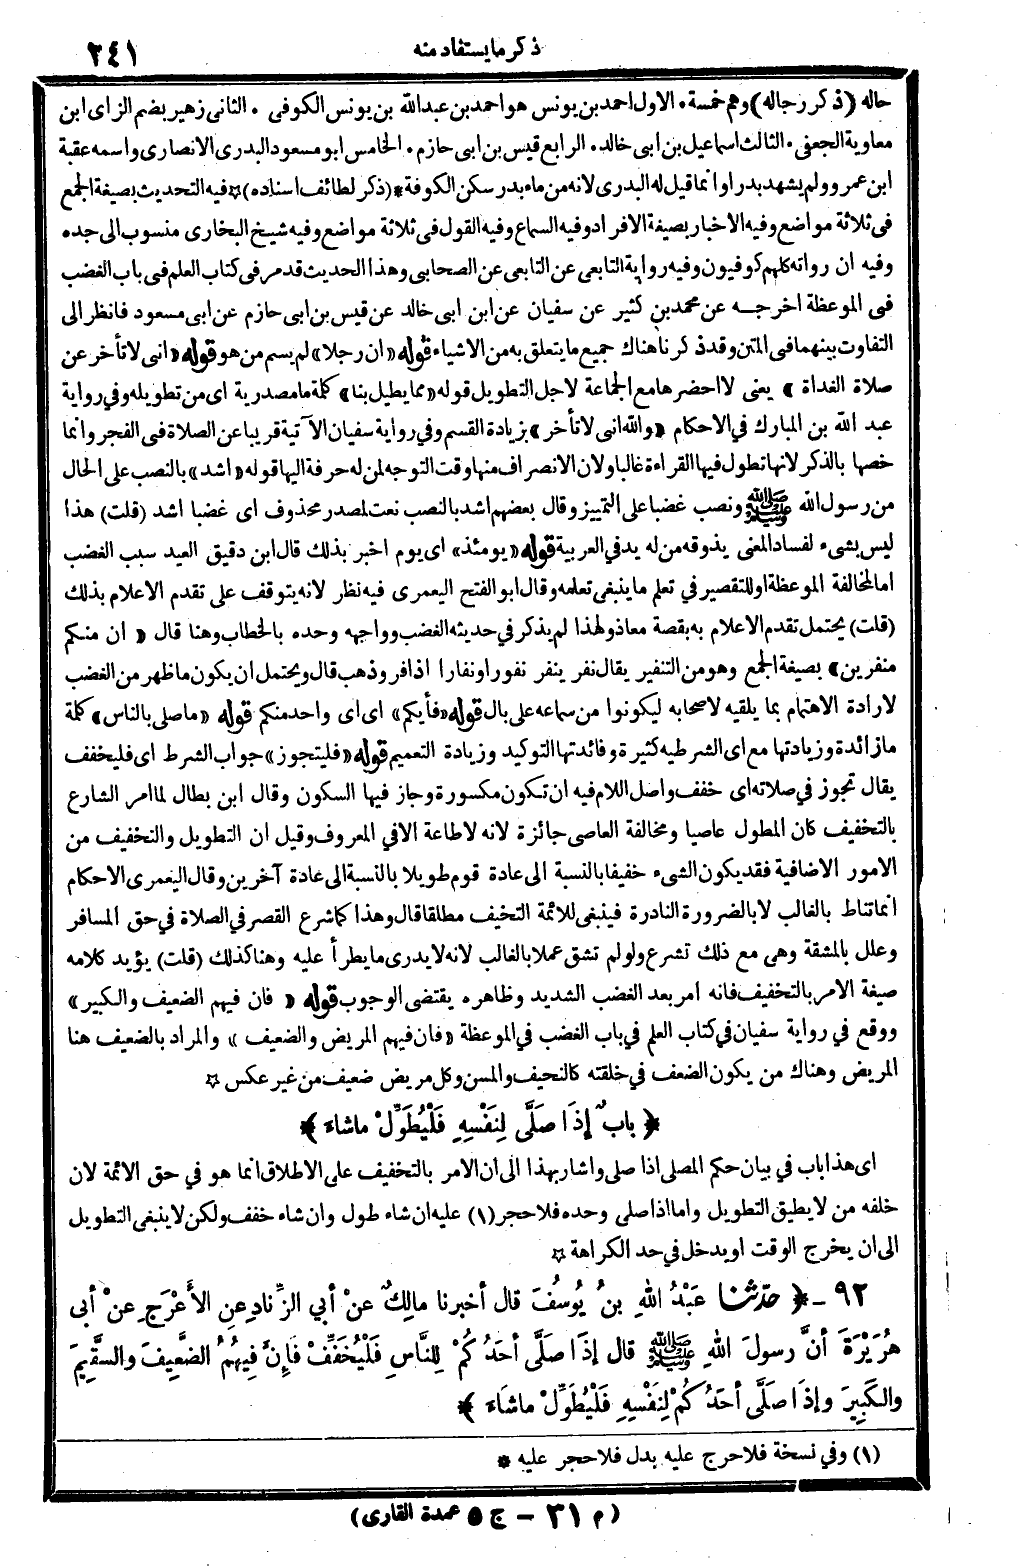 ذكر مايستفاد منه
٢٤١
حاله (ذكر رجاله) وهم خمسة. الاول احمد بن يونس هو احمد بن عبدالله بن يونس الكوفى . الثانى زهير بضم الزاى ابن
معاوية الجعفى . الثالث اسماعيل بن ابى خالد. الرابع قيس بن ابى حازم . الخامس ابو مسعود البدرى الانصارى واسمه عقبة
ابن عمرو ولم يشهد بدرا وانما قيل له البدرى لانه من ماء بدر سكن الكوفة * (ذكر لطائف اسناده) ☆ فيه التحديث بصيغة الجمع
فى ثلاثة مواضع وفيه الاخبار بصيغة الافراد وفيه السماع وفيه القول فى ثلاثة مواضع وفيه شيخ البخارى منسوب الى جده
وفيه ان رواته كلهم كوفيون وفيه رواية التابعى عن التابعى عن الصحابى وهذا الحديث قد مر فى كتاب العلم فى باب الغضب
فى الموعظة اخرجه عن محمد بن كثير عن سفيان عن ابن ابى خالد عن قيس بن ابى حازم عن ابى مسعود فانظر الى
التفاوت بينهما فى المتن وقد ذكرنا هناك جميع ما يتعلق به من الاشياء قوله «ان رجلا» لم يسم من هو قوله «انى لاتأخر عن
صلاة الغداة» يعنى لااحضرها مع الجماعة لاجل التطويل قوله «مما يطيل بنا» كلمة ما مصدرية اى من تطويله وفي رواية
عبد الله بن المبارك في الاحكام «والله انى لاتأخر» بزيادة القسم وفي رواية سفيان الآتية قريبا عن الصلاة فى الفجر وانما
خصها بالذكر لانها تطول فيها القراءة غالبا ولان الانصراف منها وقت التوجه لمن له حرفة اليها قوله «اشد» بالنصب على الحال
من رسول الله ﷺ ونصب غضبا على التمييز وقال بعضهم اشد بالنصب نعت لمصدر محذوف اى غضبا اشد (قلت) هذا
ليس بشىء لفساد المعنى يذوقه من له يد في العربية قوله «يومئذ» اى يوم اخبر بذلك قال ابن دقيق العيد سبب الغضب
اما لمخالفة الموعظة او للتقصير في تعلم ما ينبغى تعلمه وقال ابو الفتح اليعمرى فيه نظر لانه يتوقف على تقدم الاعلام بذلك
(قلت) يحتمل تقدم الاعلام به بقصة معاذ ولهذا لم يذكر في حديثه الغضب وواجهه وحده بالخطاب وهنا قال « ان منكم
منفرين» بصيغة الجمع وهو من التنفير يقال نفر ينفر نفورا ونفارا اذا فر وذهب قال ويحتمل ان يكون ما ظهر من الغضب
لارادة الاهتمام بما يلقيه لاصحابه ليكونوا من سماعه على بال قوله «فأيكم» اى اى واحد منكم قوله «ما صلى بالناس» كلمة
ما زائدة وزيادتها مع اى الشرطيه كثيرة وفائدتها التوكيد وزيادة التعميم قوله «فليتجوز» جواب الشرط اى فليخفف
يقال تجوز في صلاته اى خفف واصل اللام فيه ان تكون مكسورة وجاز فيها السكون وقال ابن بطال لما امر الشارع
بالتخفيف كان المطول عاصيا ومخالفة العاصى جائزة لانه لاطاعة الا في المعروف وقيل ان التطويل والتخفيف من
الامور الاضافية فقد يكون الشىء خفيفا بالنسبة الى عادة قوم طويلا بالنسبة الى عادة آخرين وقال اليعمرى الاحكام
انما تناط بالغالب لا بالضرورة النادرة فينبغى للائمة التخيف مطلقا قال وهذا كما شرع القصر في الصلاة في حق المسافر
وعلل بالمشقة وهى مع ذلك تشرع ولو لم تشق عملا بالغالب لانه لا يدرى ما يطرأ عليه وهنا كذلك (قلت) يؤيد كلامه
صيغة الامر بالتخفيف فانه امر بعد الغضب الشديد وظاهره يقتضى الوجوب قوله « فان فيهم الضعيف والكبير»
ووقع في رواية سفيان في كتاب العلم في باب الغضب في الموعظة «فان فيهم المريض والضعيف» والمراد بالضعيف هنا
المريض وهناك من يكون الضعف في خلقته كالنحيف والمسن وكل مريض ضعيف من غير عكس ☆
﴿ بابٌ إِذَا صَلَّى لِنَفْسِهِ فَلْيُطَوِّلْ ماشاءَ ﴾
اى هذا باب في بيان حكم المصلى اذا صلى واشار بهذا الى ان الامر بالتخفيف على الاطلاق انما هو في حق الائمة لان
خلفه من لا يطيق التطويل واما اذا صلى وحده فلا حجر (١) عليه ان شاء طول وان شاء خفف ولكن لا ينبغى التطويل
الى ان يخرج الوقت او يدخل في حد الكراهة ☆
٩٢ - ﴿ حدّثنا عَبْدُ اللهِ بنُ يُوسُفَ قال أخبرنا مالِكٌ عنْ أبي الزِّنادِ عنِ الأَعْرَجِ عنْ أبى
هُرَيْرَةَ أنَّ رسولَ اللهِ ﷺ قال إذَا صَلَّى أحَدُكُمْ لِلنَّاسِ فَلْيُخَفِّفْ فَإِنَّ فِيهُمُ الضَّعِيفَ والسَّقِيمَ
والكَبِيرَ وإذَا صَلَّى أحَدُكُمْ لِنَفْسِهِ فَلْيُطَوِّلْ ماشَاءَ ﴾
(١) وفي نسخة فلا حرج عليه بدل فلا حجر عليه *
(م ٣١ - ج ٥ عمدة القارى)